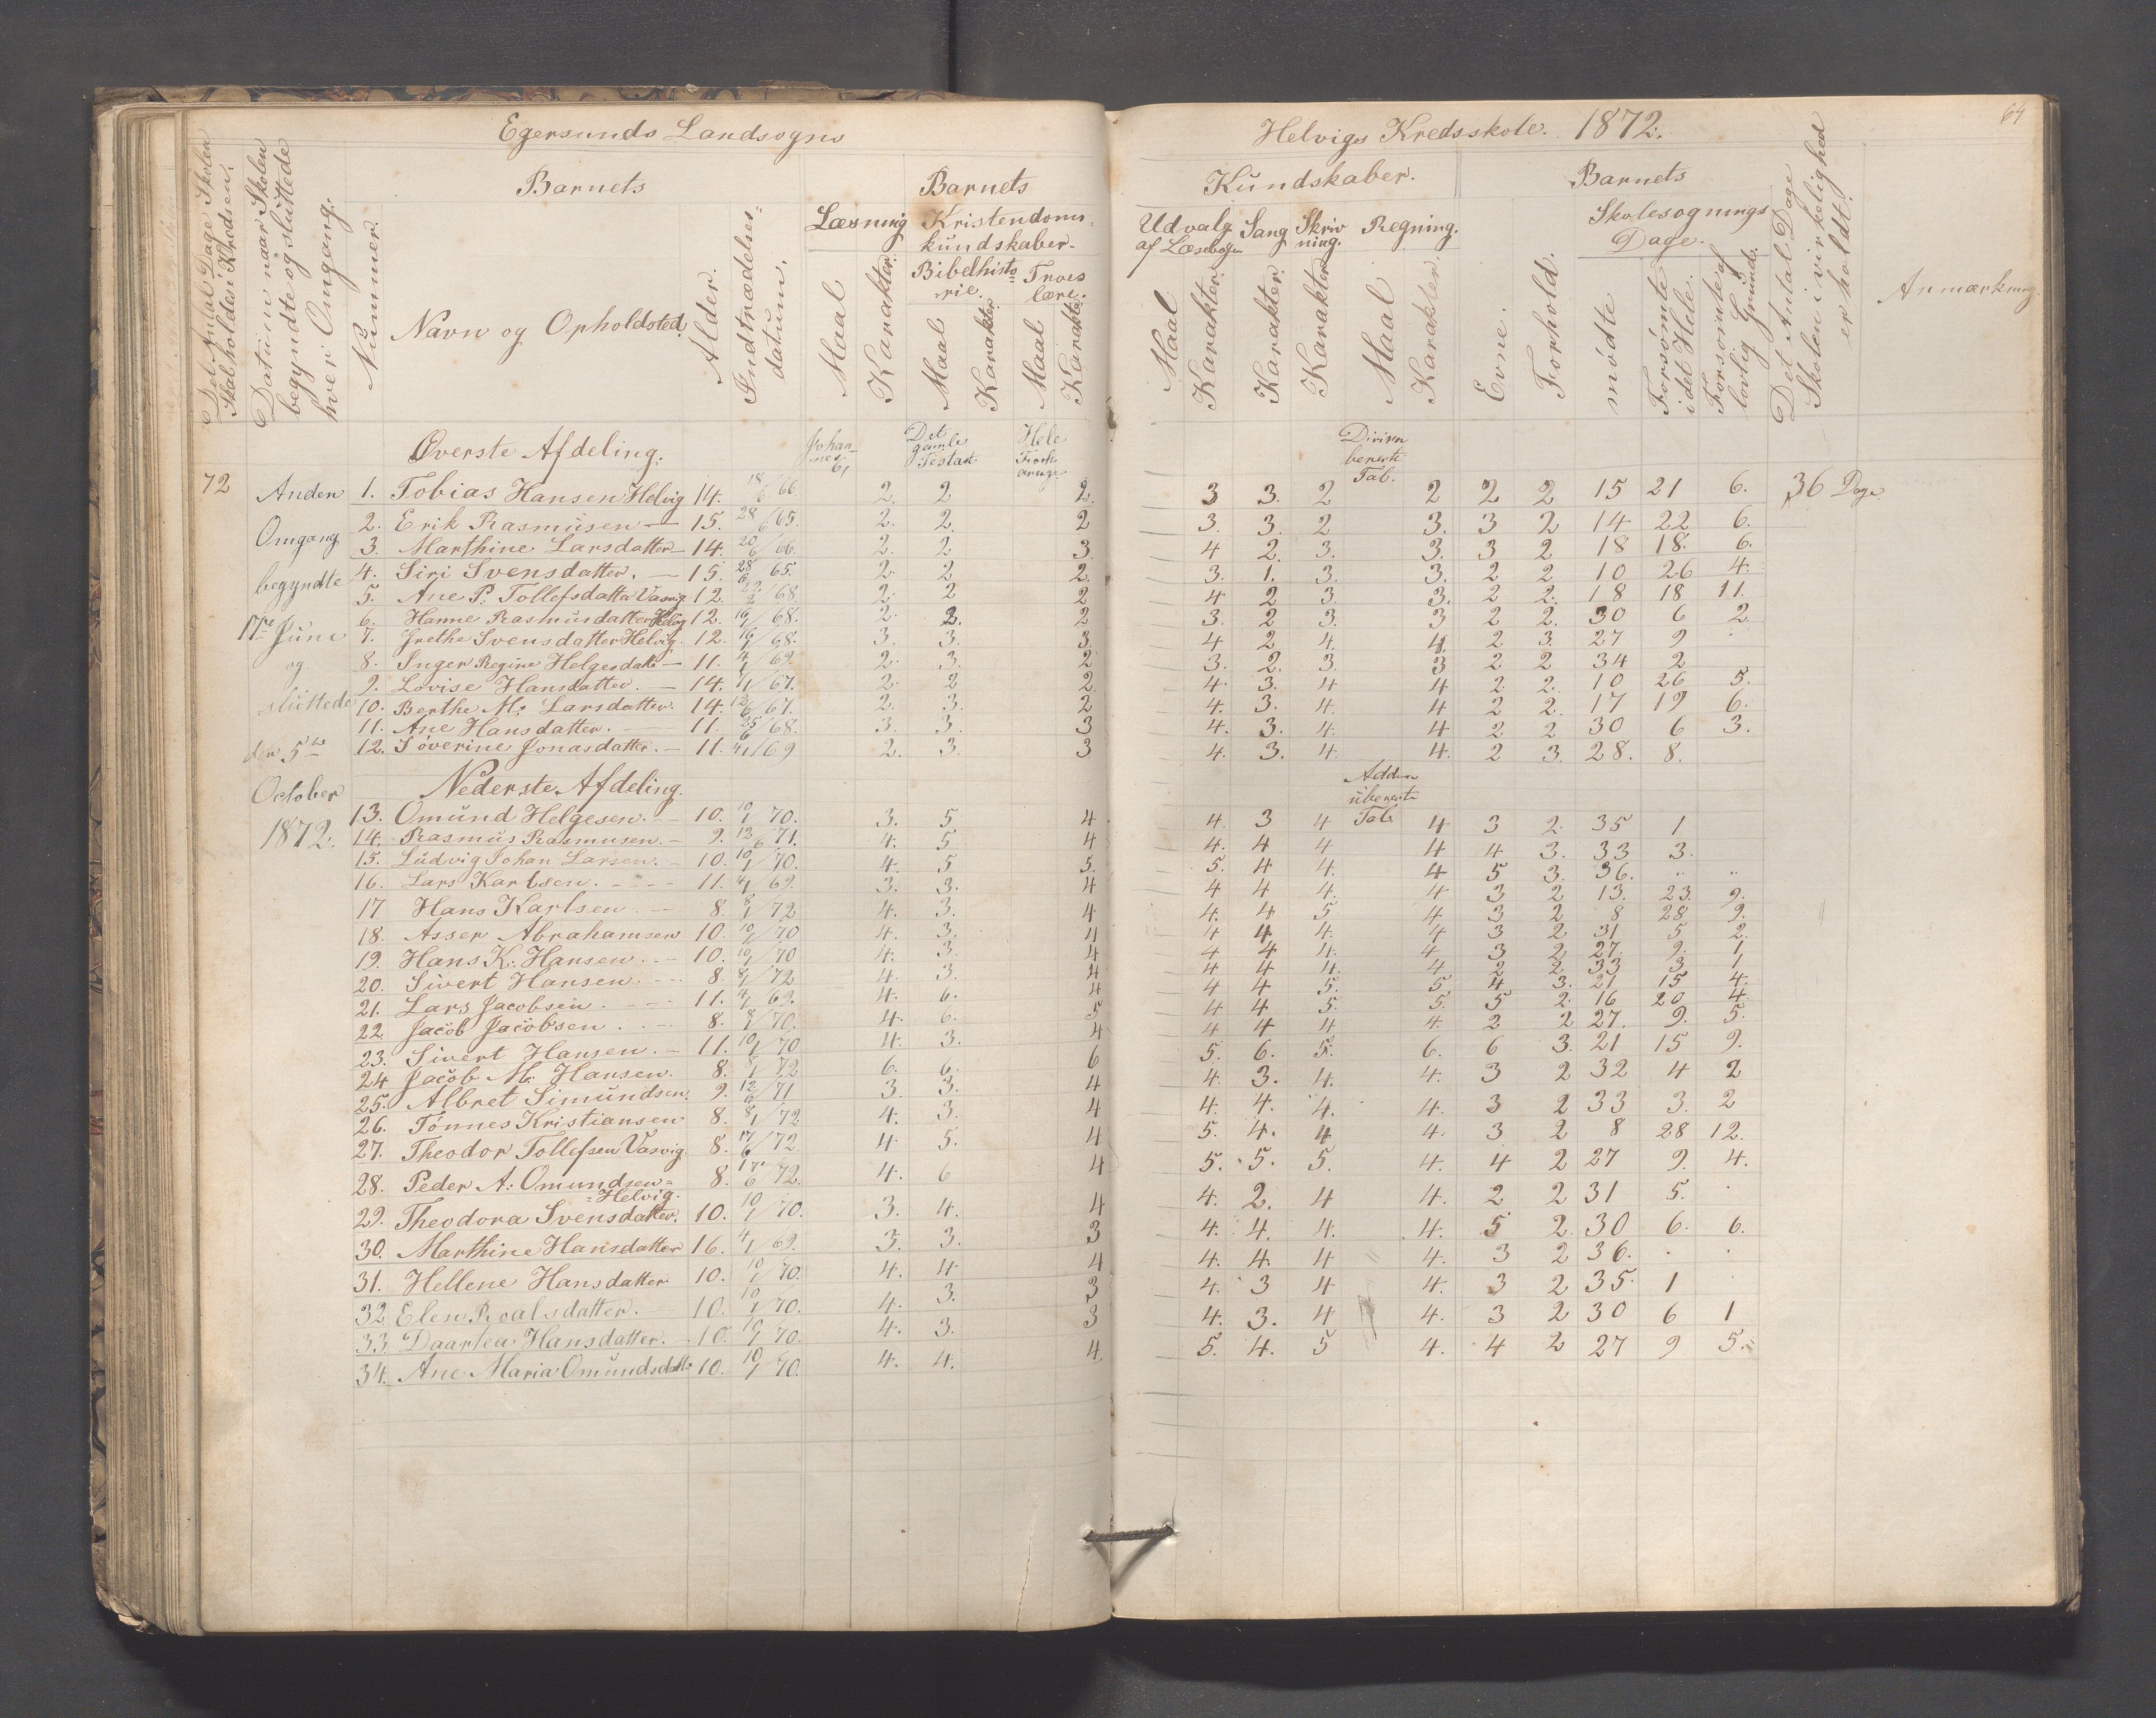 Egersunds Landsogns
Helvigs Kredsskole. 1872.
64
Det Antal Dage Skolen
Skal holdes i Kredsen.
Datum naar Skolen
begyndte og sluttede
hver Omgang.
Nummer.
Barnets
Navn og Opholdsted
Alder.
Indtrædelses-
datum.
Barnets
Læsning
Maal
Karakter.
Kristendoms-
kundskaber.
Bibelhisto-
rie.
Maal
Karakter
Troes
lære.
Maal
Karakter
Kundskaber.
Udvalg
af Læsebogen
Maal
Karakter.
Sang
Karakter.
Skriv
ning.
Karakter
Regning.
Maal
Karakter.
Barnets
Evne.
Forhold.
Skolesøgnings
Dage.
mødte
Forsømte
i det Hele.
Forsømte af
lovlig Grunde.
Det Antal Dage
Skolen i virkelighed
er holdt.
Anmærkning
Øverste Afdeling.
Johan-
nes 6,
Det
gamle
Testat
Hele
Forkl
Tab.
72
Anden
Omgang
begyndte
17de Juni
og
sluttede
den 5te
October
1872.
1. Tobias Hansen Helvig 14. 18/6 66 2. 2 2. 3 3. 2 2 2 2 15 21 6. 36 Dage
2. Erik Rasmusen — 15. 28/6 65. 2. 2. 2 3. 3. 2 3. 3 2 14 22 6.
3. Marthine Larsdatter — 14. 20/6 66. 2. 2 3. 4 2. 3. 3. 3 2 18 18. 6.
4. Siri Svensdatter. — 15. 28/6 65. 2. 2 2. 3. 1. 3. 3. 2 2 10 26 4.
5. Ane P. Tollefsdatter Vasvig 12. 22/2 68 2. 2 2 4 2 3 3. 2 2. 18 18 11.
6. Hanne Rasmusdatter Helvig 12. 16/1 68. 2. 2. 2 3. 2 3. 3 2 2. 30 6 2
7. Grethe Svensdatter Helvig. 12. 16/1 68. 3. 3. 3. 4 2 4. 4. 2 3. 27 9
8. Inger Regine Helgesdatt — 11. 4/1 69. 2. 3. 2 3. 2. 3. 3 2 2 34 2
9. Lovise Hansdatter. — 14. 4/1 67. 2. 2 2. 4. 3. 4 4 2 2. 10 26 5.
10. Berthe M. Larsdatter. 14. 12/6 67. 2. 3. 2 4. 3. 4. 4 2 2. 17 19 6.
11. Ane Hansdatter. — 11. 25/6 68. 3. 3. 3 4. 3. 4. 4 2 2 30 6 3.
12. Søverine Jonasdatter. — 11. 4/1 69 2. 3. 3 4. 3. 4. 4. 2 3. 28. 8.
Nederste Afdeling.
Tab.
13. Omund Helgesen. — 10. 10/1 70. 3. 5 4 4. 3 4 4 3 2. 35 1
14. Rasmus Rasmusen. — 9. 12/6 71. 4. 5 4 4. 4 4 4 4 3. 33 3.
15. Ludvig Johan Larsen. — 10. 10/1 70. 4. 5 5. 5. 4 4. 4 5 3. 36. .. ..
16. Lars Karlsen. - - - 11. 4/1 69. 3. 3. 4 4 4 4. 4 3 2 13. 23. 9.
17 Hans Karlsen. — 8. 8/1 72 4. 3. 4 4. 4 5 4 3 2 8 28 9.
18. Asser Abrahamsen 10. 10/1 70 4. 3. 4 4 4 4. 4 3 2 31 5 2.
19. Hans K. Hansen. - - 10. 10/1 70 4. 3. 4 4 4 4. 4 3 2 27 9. 1
20. Sivert Hansen. - - 8. 8/1 72 4. 3. 4 4 4 4. 4 2 2 33 3 1
21. Lars Jacobsen. - - 11. 4/1 69. 4. 6. 4 4 4 5. 5. 4 3. 21 15 4.
22 Jacob Jacobsen. - - 8. 8/1 70. 4. 6. 5 4 4 5. 5. 5 2. 16 20 4.
23. Sivert Hansen. — 11. 10/1 70 4. 3. 4 4 4 4 4. 2 2 27. 9. 5.
24 Jacob M. Hansen. 8. 8/1 72 6. 6. 6 5. 6. 5. 6. 6 3. 21 15 9.
25. Albret Simundsen. 9. 12/6 71 3. 3. 4 4. 3. 4. 4. 3 2 32 4 2
26. Tønnes Kristiansen 8. 8/1 72 4. 3. 4 4. 4. 4. 4. 3 2 33 3. 2
27. Theodor Tollefsen Vasvig. 8. 17/6 72. 4 5. 4 5. 4. 4 4. 3 2 8 28 12.
28. Peder A. Omundsen- 8. 17/6 72. 4. 6 4 5. 5. 5. 4. 4 2 27 9. 4.
-Helvig.
29. Theodora Svensdatter. 10. 10/1 70. 3. 4. 4 4. 2. 4 4. 2 2 31 5. .
30. Marthine Hansdatter 16. 4/1 69. 3. 3. 3 4. 4. 4. 4. 5 2. 30 6. 6.
31. Hellene Hansdatter 10. 10/1 70. 4. 4 4 4. 4. 4 4. 3 2 36. . .
32 Elen Roalsdatter. — 10. 10/1 70. 4. 3. 3 4. 3 4 4. 3 2 35. 1
33. Daartea Hansdatter. — 10. 10/1 70. 4. 3. 3 4. 3. 4 4. 3 2 30 6 1
34. Ane Maria Omundsdatt 10. 10/1 70. 4. 4. 4. 5. 4. 5 4. 4 2 27 9 5.